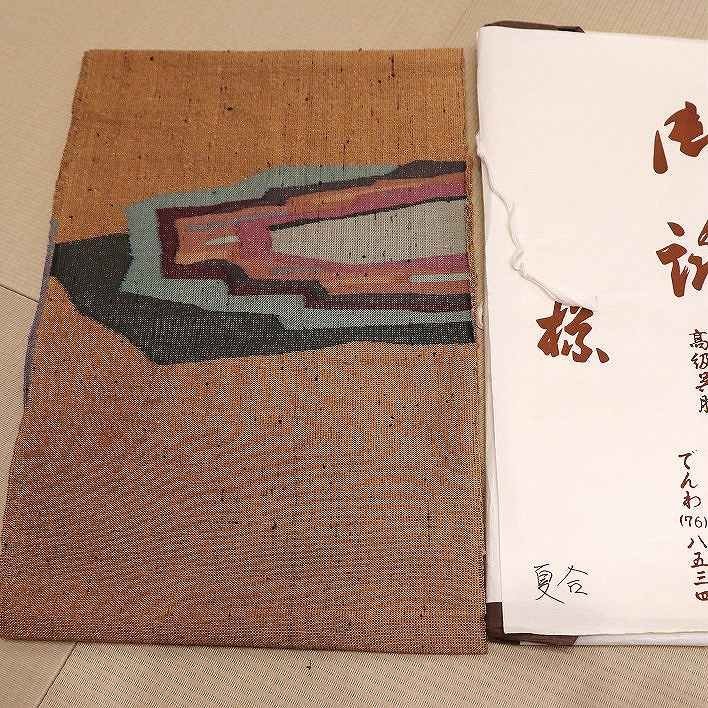 御誂
様
高級呉服
でんわ(76)八五三四
夏合